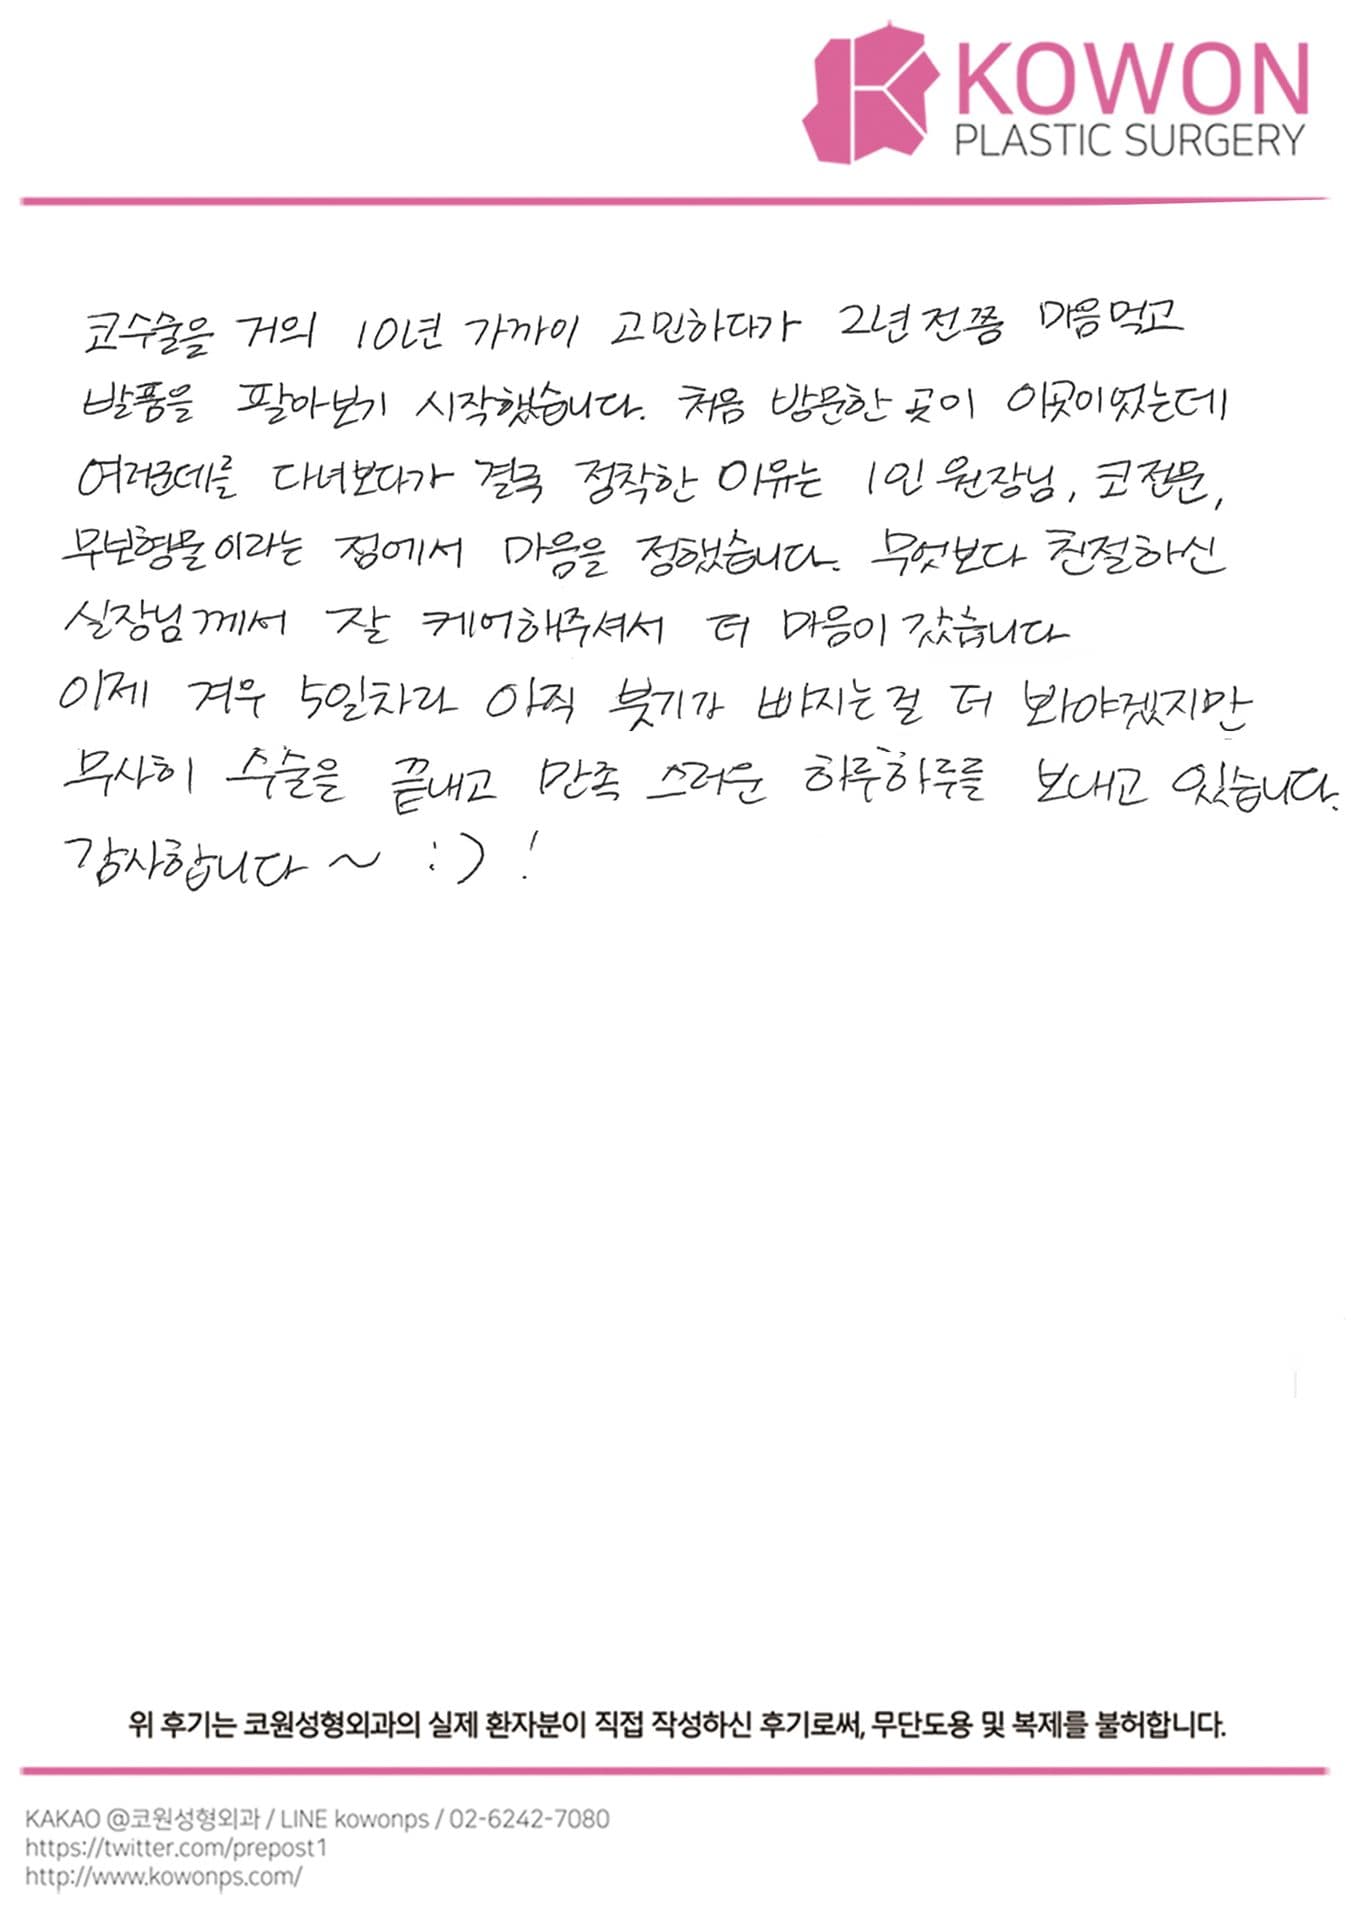 KOWON
PLASTIC SURGERY
코수술을 거의 10년 가까이 고민하다가 2년전쯤 마음먹고
발품을 팔아보기 시작했습니다. 처음 방문한 곳이 이곳이었는데
여러군데를 다녀보다가 결국 정착한 이유는 1인 원장님, 코전문,
무보형물이라는 점에서 마음을 정했습니다. 무엇보다 친절하신
실장님께서 잘 케어해주셔서 더 마음이 갔습니다
이제 겨우 5일차라 아직 붓기가 빠지는걸 더 봐야겠지만
무사히 수술을 끝내고 만족 스러운 하루하루를 보내고 있습니다.
감사합니다~ :) !
위 후기는 코원성형외과의 실제 환자분이 직접 작성하신 후기로써, 무단도용 및 복제를 불허합니다.
KAKAO @코원성형외과 / LINE kowonps / 02-6242-7080
https://twitter.com/prepost1
http://www.kowonps.com/